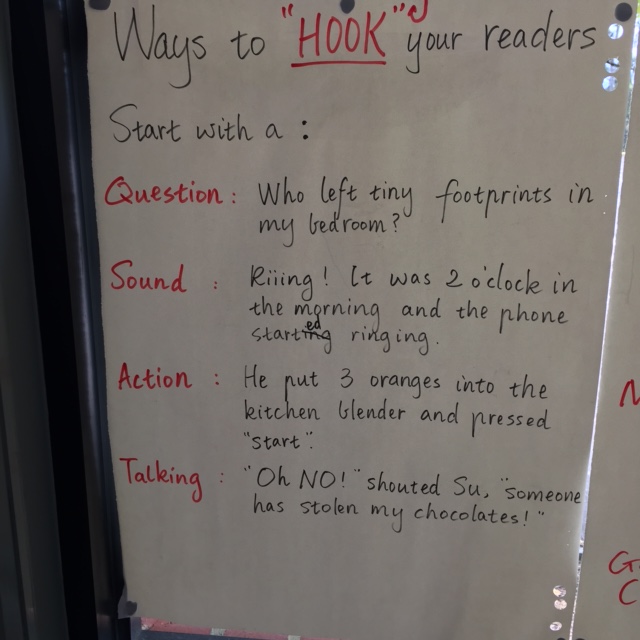 Ways to "HOOK" your readers
Start with a :
Question : Who left tiny footprints in
my bedroom?
Sound : Riiing! It was 2 o'clock in
the morning and the phone
started ringing.
Action : He put 3 oranges into the
kitchen blender and pressed
"start".
Talking : "Oh NO!" shouted Su, "someone
has stolen my chocolates!"